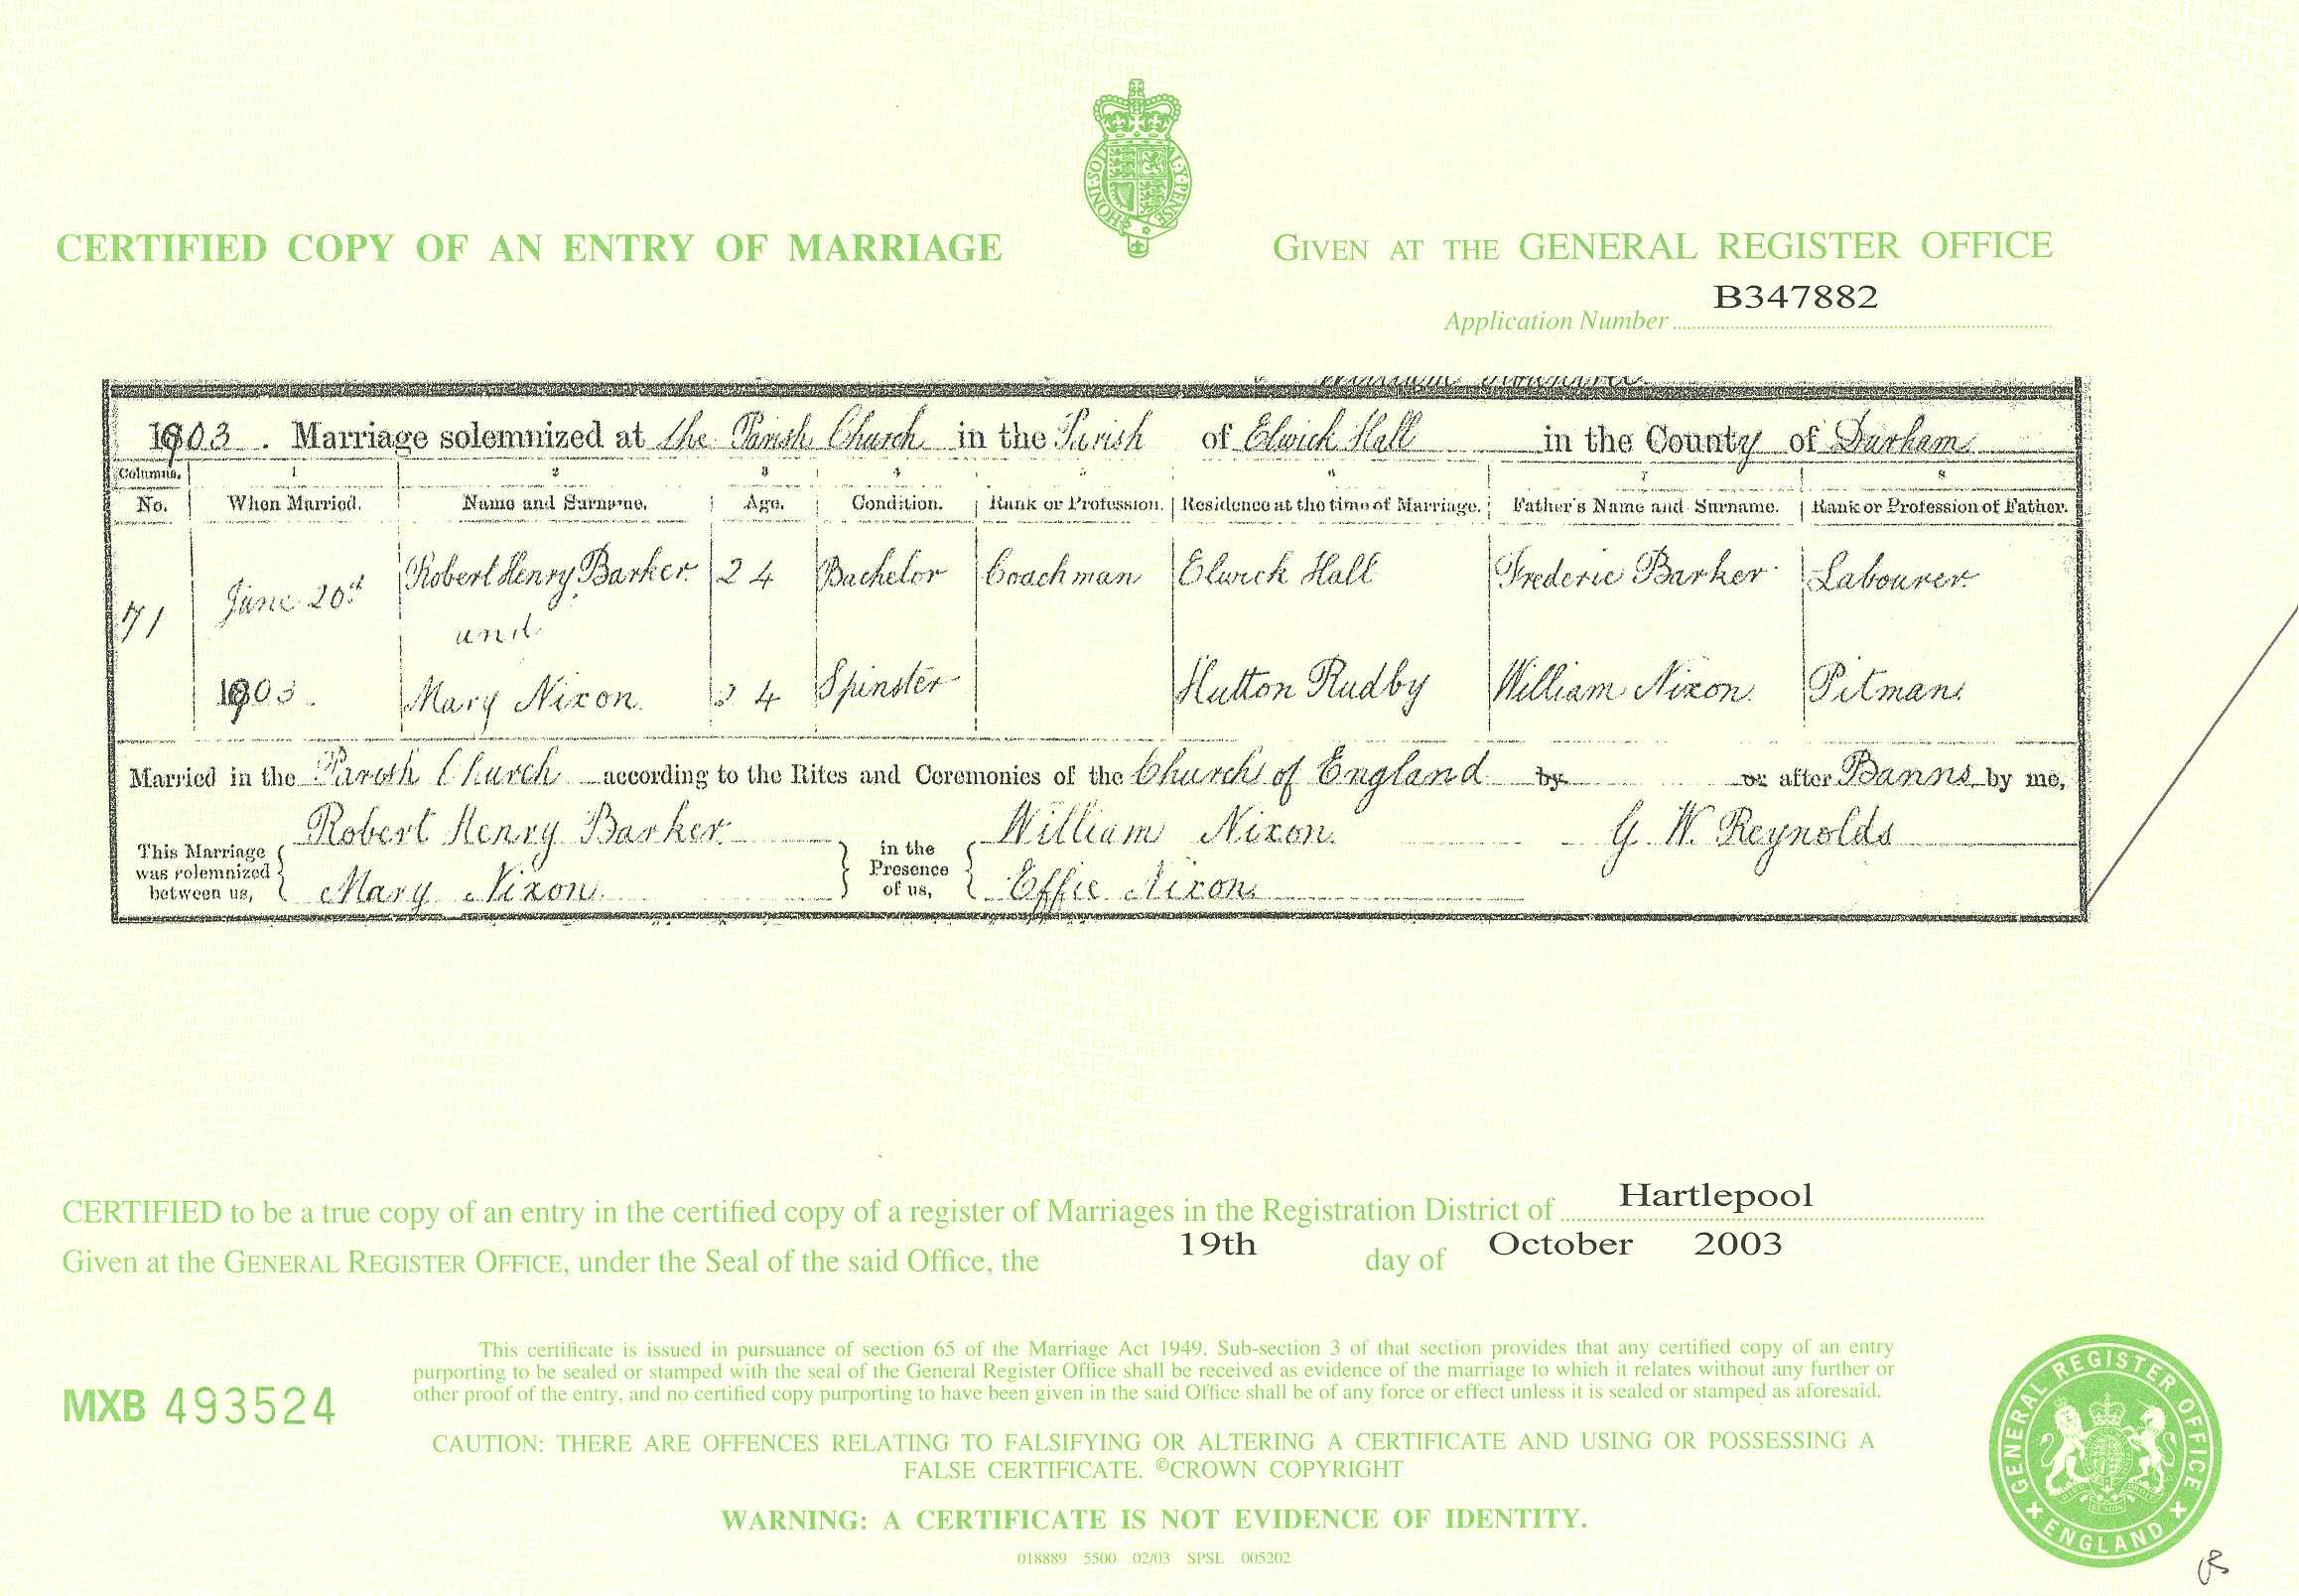 HONI·SOIT·Q·MAL·Y·PENSE
CERTIFIED COPY OF AN ENTRY OF MARRIAGE
GIVEN AT THE GENERAL REGISTER OFFICE
Application Number B347882
1903. Marriage solemnized at the Parish Church in the Parish of Elwick Hall in the County of Durham
Columns. 1 2 3 4 5 6 7 8
No. When Married. Name and Surname. Age. Condition. Rank or Profession. Residence at the time of Marriage. Father's Name and Surname. Rank or Profession of Father.
71 June 20th Robert Henry Barker 24 Bachelor Coachman Elwick Hall Frederic Barker Labourer
and
1903. Mary Nixon 24 Spinster Hutton Rudby William Nixon Pitman
Married in the Parish Church according to the Rites and Ceremonies of the Church of England by or after Banns by me,
This Marriage was solemnized between us, Robert Henry Barker in the Presence of us, William Nixon G. W. Reynolds
Mary Nixon Effie Nixon
CERTIFIED to be a true copy of an entry in the certified copy of a register of Marriages in the Registration District of Hartlepool
Given at the GENERAL REGISTER OFFICE, under the Seal of the said Office, the 19th day of October 2003
This certificate is issued in pursuance of section 65 of the Marriage Act 1949. Sub-section 3 of that section provides that any certified copy of an entry
purporting to be sealed or stamped with the seal of the General Register Office shall be received as evidence of the marriage to which it relates without any further or
other proof of the entry, and no certified copy purporting to have been given in the said Office shall be of any force or effect unless it is sealed or stamped as aforesaid.
MXB 493524
CAUTION: THERE ARE OFFENCES RELATING TO FALSIFYING OR ALTERING A CERTIFICATE AND USING OR POSSESSING A
FALSE CERTIFICATE. ©CROWN COPYRIGHT
WARNING: A CERTIFICATE IS NOT EVIDENCE OF IDENTITY.
018889 5500 02/03 SPSL 005202
GENERAL REGISTER OFFICE
ENGLAND